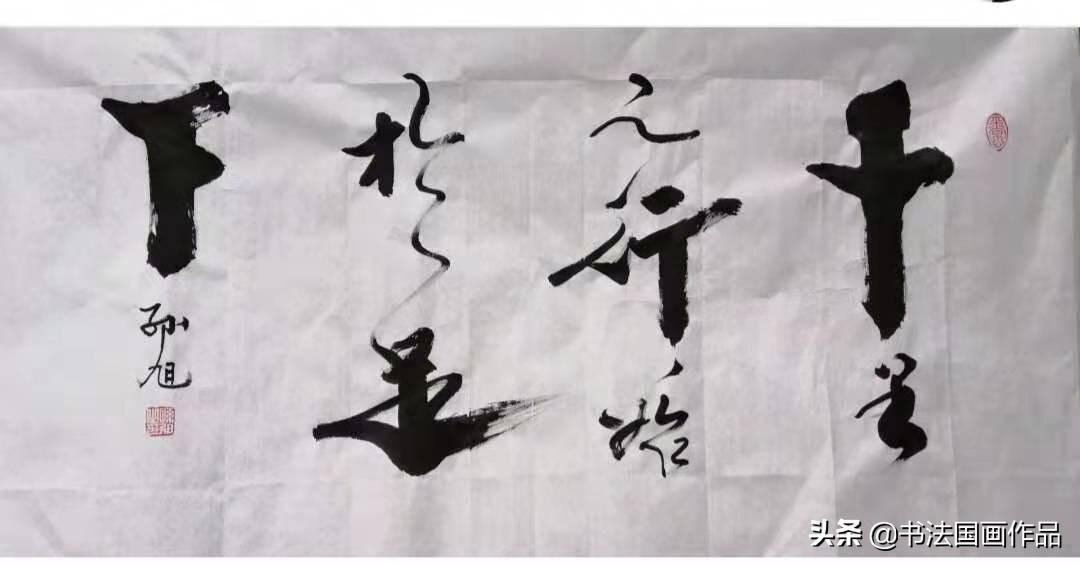 千里
之行始
於足
下
孙旭
头条@书法国画作品